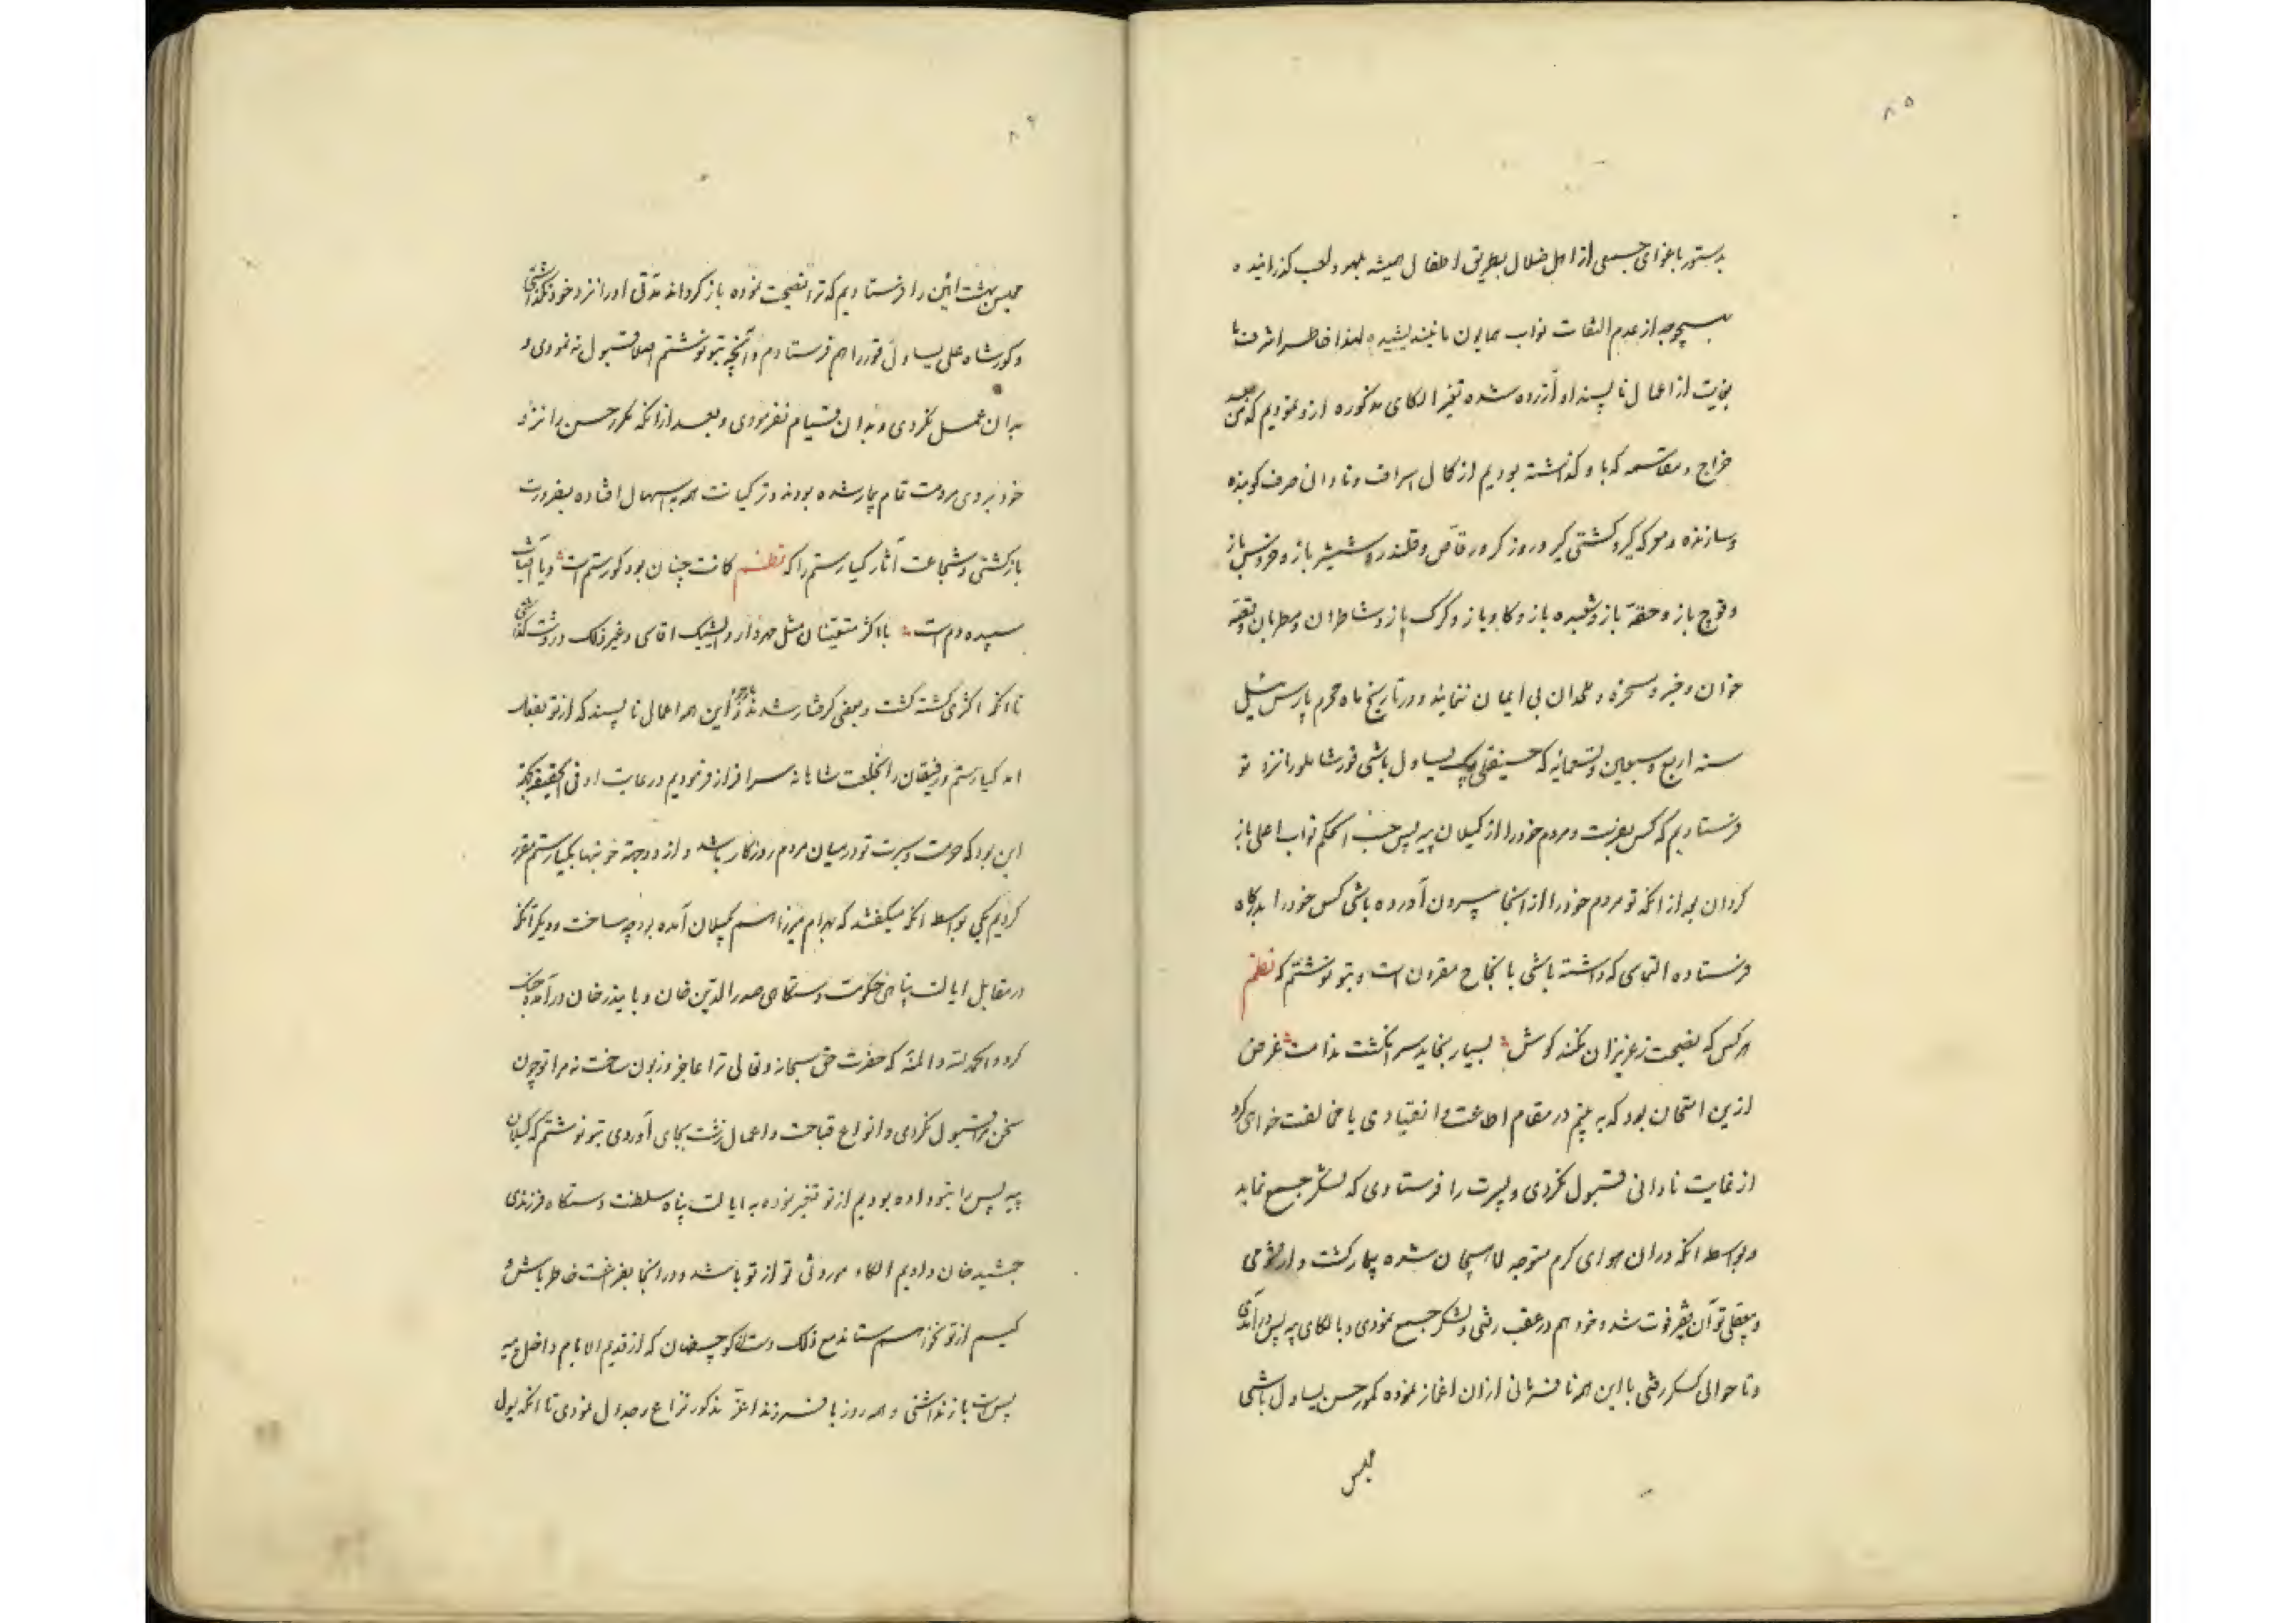 ۸۵
بدستور باغوای جمعی از اهل ضلال بطریق اطفال همیشه بلهو و لعب کذرانیده
بهیچوجه از عدم التفات نواب همایون ما نیندیشیده لهذا خاطر اشرف ما
بغایت از اعمال ناپسند او آزرده شده تغیر الکای مذکوره ازو نمودیم که من بعد
خراج و مقاسمه که باو کذاشته بودیم از کمال اسراف و نادانی صرف کوینده
و سازنده و معرکه کیر و کشتی کیر و روزکر و رقاص و قلندر و شمشیر باز و خروس باز
و قوچ باز و حقه باز و شعبده باز و کاو باز و کرک باز و شاطران و مطربان و قصه
خوان و حیز و مسخره و ملحدان بی ایمان ننمایند و در تاریخ ماه محرم پارس ئیل
سنه اربع و سبعین و تسعمائه که حسینقلی بیک یساول باشی قورشاملو را نزد تو
فرستادیم که کس بفرست و مردم خود را از کیلان پیه پس حسب الحکم نواب اعلی باز
کردان بعد از انکه تو مردم خود را از انجا بیرون آورده باشی کس خود را بدرکاه
فرستاده التماسی که داشته باشی بانجاح مقرون است و بتو نوشتم که نظم
هر کس که نصیحت ز عزیزان نکند کوش بسیار بخاید سر انکشت ندامت غرض
ازین امتحان بود که به بینم در مقام اطاعت و انقیادی یا مخالفت خواهی کرد
از غایت نادانی قبول نکردی و پسرت را فرستادی که لشکر جمع نماید
و بواسطه انکه دران هوای کرم متوجه لاهیجان شده بیمار کشت و از شومی
و بیعقلی تو آن پسر فوت شد و خود هم در عقب رفتی و لشکر جمع نمودی و بالکای پیه پس درآمدی
و تا حوالی کسکر رفتی با این همه نافرمانی ازان اغماز نموده کور حسن یساول باشی
مجلس
۸۶
مجلس بهشت آئین را فرستادیم که ترا نصیحت نموده باز کرداند مدتی او را نزد خود نکاهداشتی
و کور شاه علی یساول قور را هم فرستادم و آنچه بتو نوشتم اصلا قبول نه نمودی و
بدان عمل نکردی و بدان قیام نفرمودی و بعد از انکه کور حسن را نزد
خود بردی مردمت تمام بیمار شده بودند و ترکیانت همه به اسهال افتاده بضرورت
باز کشتی و شجاعت آثار کیا رستم را که نظم کانت چنان بود کو رستم است و یا آفتاب
سپیده دم است با اکثر متعینان مثل مهردار و ایشیک اقاسی و غیر ذلک در رشت کذاشتی
تا انکه اکثری کشته کشت و بعضی کرفتار شدند باوجود این همه اعمال ناپسند که از تو بفعل
امد کیا رستم و رفیقان را بخلعت شاهانه سرافراز فرمودیم و رعایت او فی الحقیقه بجهة
این بود که حرمت و سیرت تو درمیان مردم روزکار باشد و از دو جهة خونبها بکیا رستم مقرر
کردیم یکی بواسطه انکه میکفتند که بهرام میرزا هم بکیلان آمده بود چه ساخت و دیکر آنکه
در مقابل ایالت پناهی حکومت دستکاهی صدرالدین خان و بایندر خان درآمده جنک
کرد و الحمدلله والمنه که حضرت حق سبحانه و تعالی ترا عاجز و زبون ساخت نه مرا تو چون
سخن مرا قبول نکردی و انواع قباحت و اعمال زشت بجای آوردی بتو نوشتم که کیلان
پیه پس را بتو داده بودیم از تو تغیر نموده به ایالت پناه سلطنت دستکاه فرزندی
جمشید خان دادیم الکاء موروثی تو از تو باشد و در انجا بفراغت خاطر باش و
کسیم از تو نخواهم ستاند مع ذلک دست از کوچسفهان که از قدیم الایام داخل پیه
پس است باز نداشتی و هر روز با فرزند اعز مذکور نزاع و جدال نمودی تا انکه یول